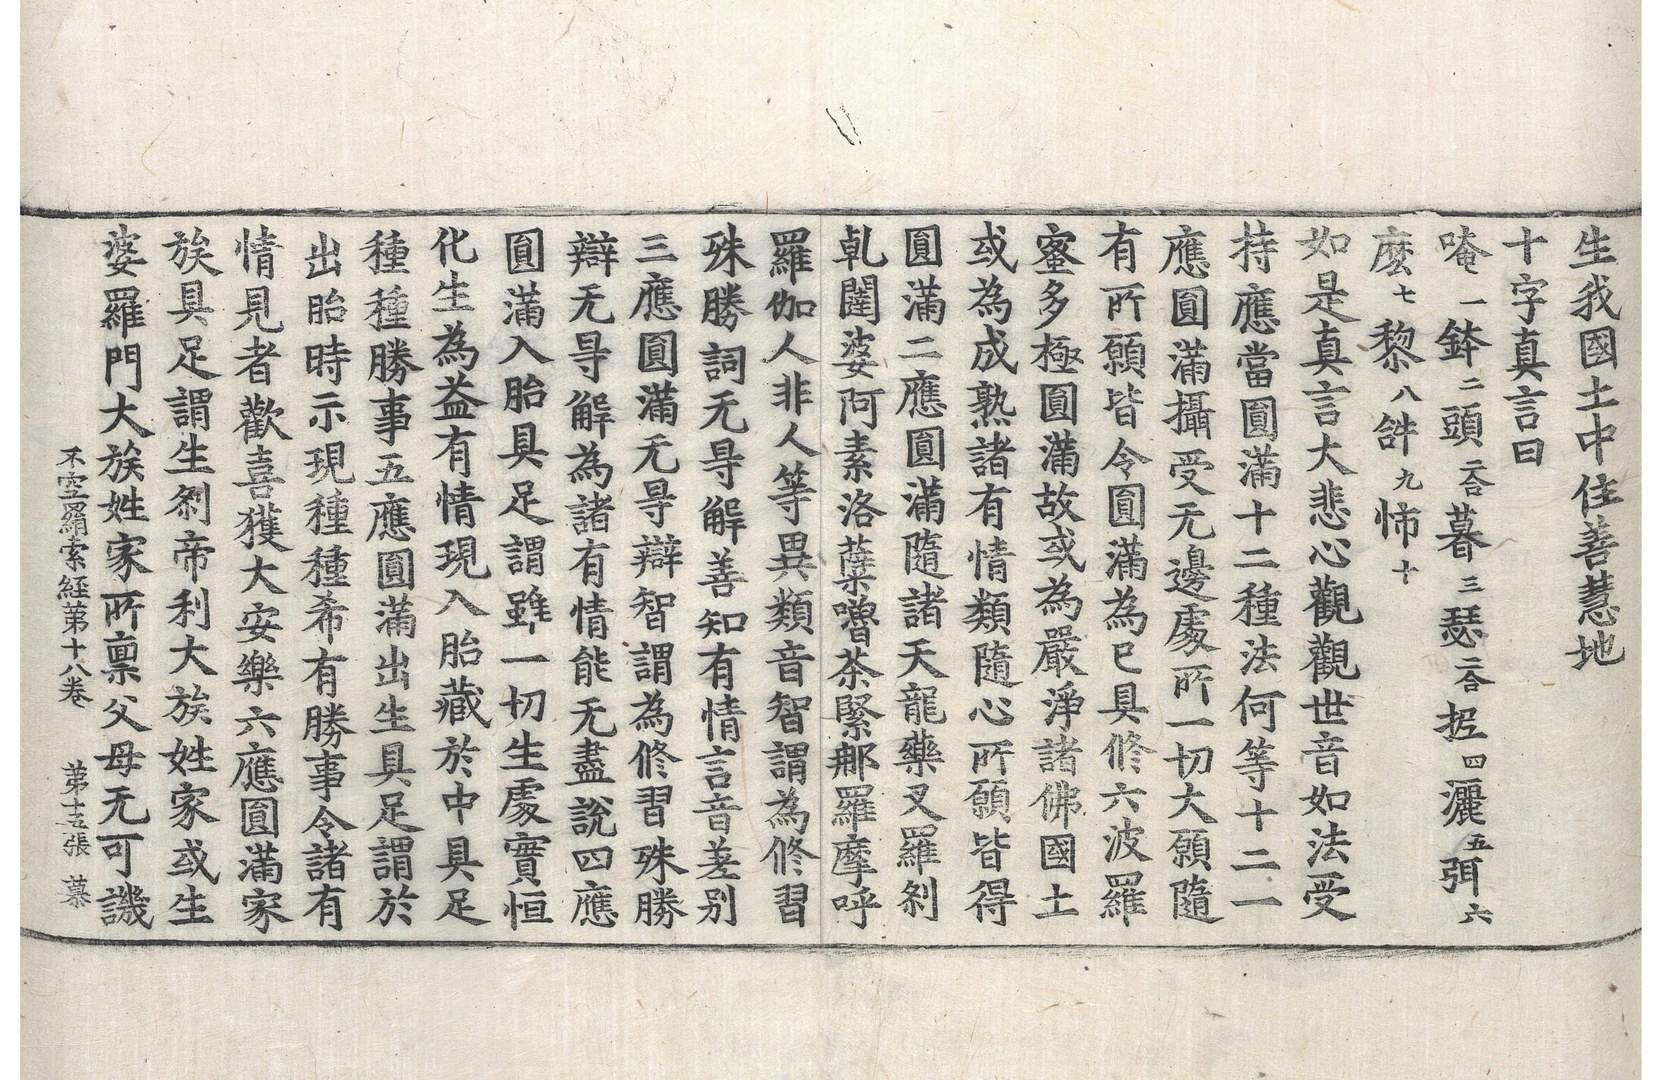 生我國土中住善慧地
十字真言曰
唵一鉢二頭二合暮三瑟二合抳四灑五弭六
麼七黎八𤙖九怖十
如是真言大悲心觀觀世音如法受
持應當圓滿十二種法何等十二一
應圓滿攝受无邊處所一切大願隨
有所願皆令圓滿為已具修六波羅
蜜多極圓滿故或為嚴淨諸佛國土
或為成熟諸有情類隨心所願皆得
圓滿二應圓滿隨諸天龍藥叉羅剎
乹闥婆阿素洛蘗嚕荼緊郍羅摩呼
羅伽人非人等異類音智謂為修習
殊勝詞无㝵解善知有情言音差別
三應圓滿无㝵辯智謂為修習殊勝
辯无㝵解為諸有情能无盡說四應
圓滿入胎具足謂雖一切生處實恒
化生為益有情現入胎藏於中具足
種種勝事五應圓滿出生具足謂於
出胎時示現種種希有勝事令諸有
情見者歡喜獲大安樂六應圓滿家
族具足謂生剎帝利大族姓家或生
婆羅門大族姓家所稟父母无可譏
不空羂索經第十八卷 第十五張 慕